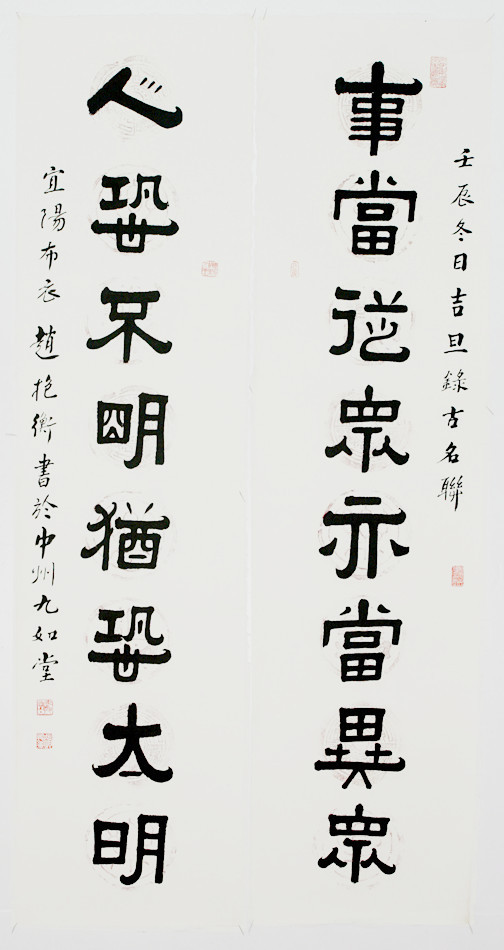 壬辰冬日吉旦錄古名聯
事當從眾亦當異眾
人恐不朙猶恐太明
宜陽布衣趙抱衡書於中州九如堂